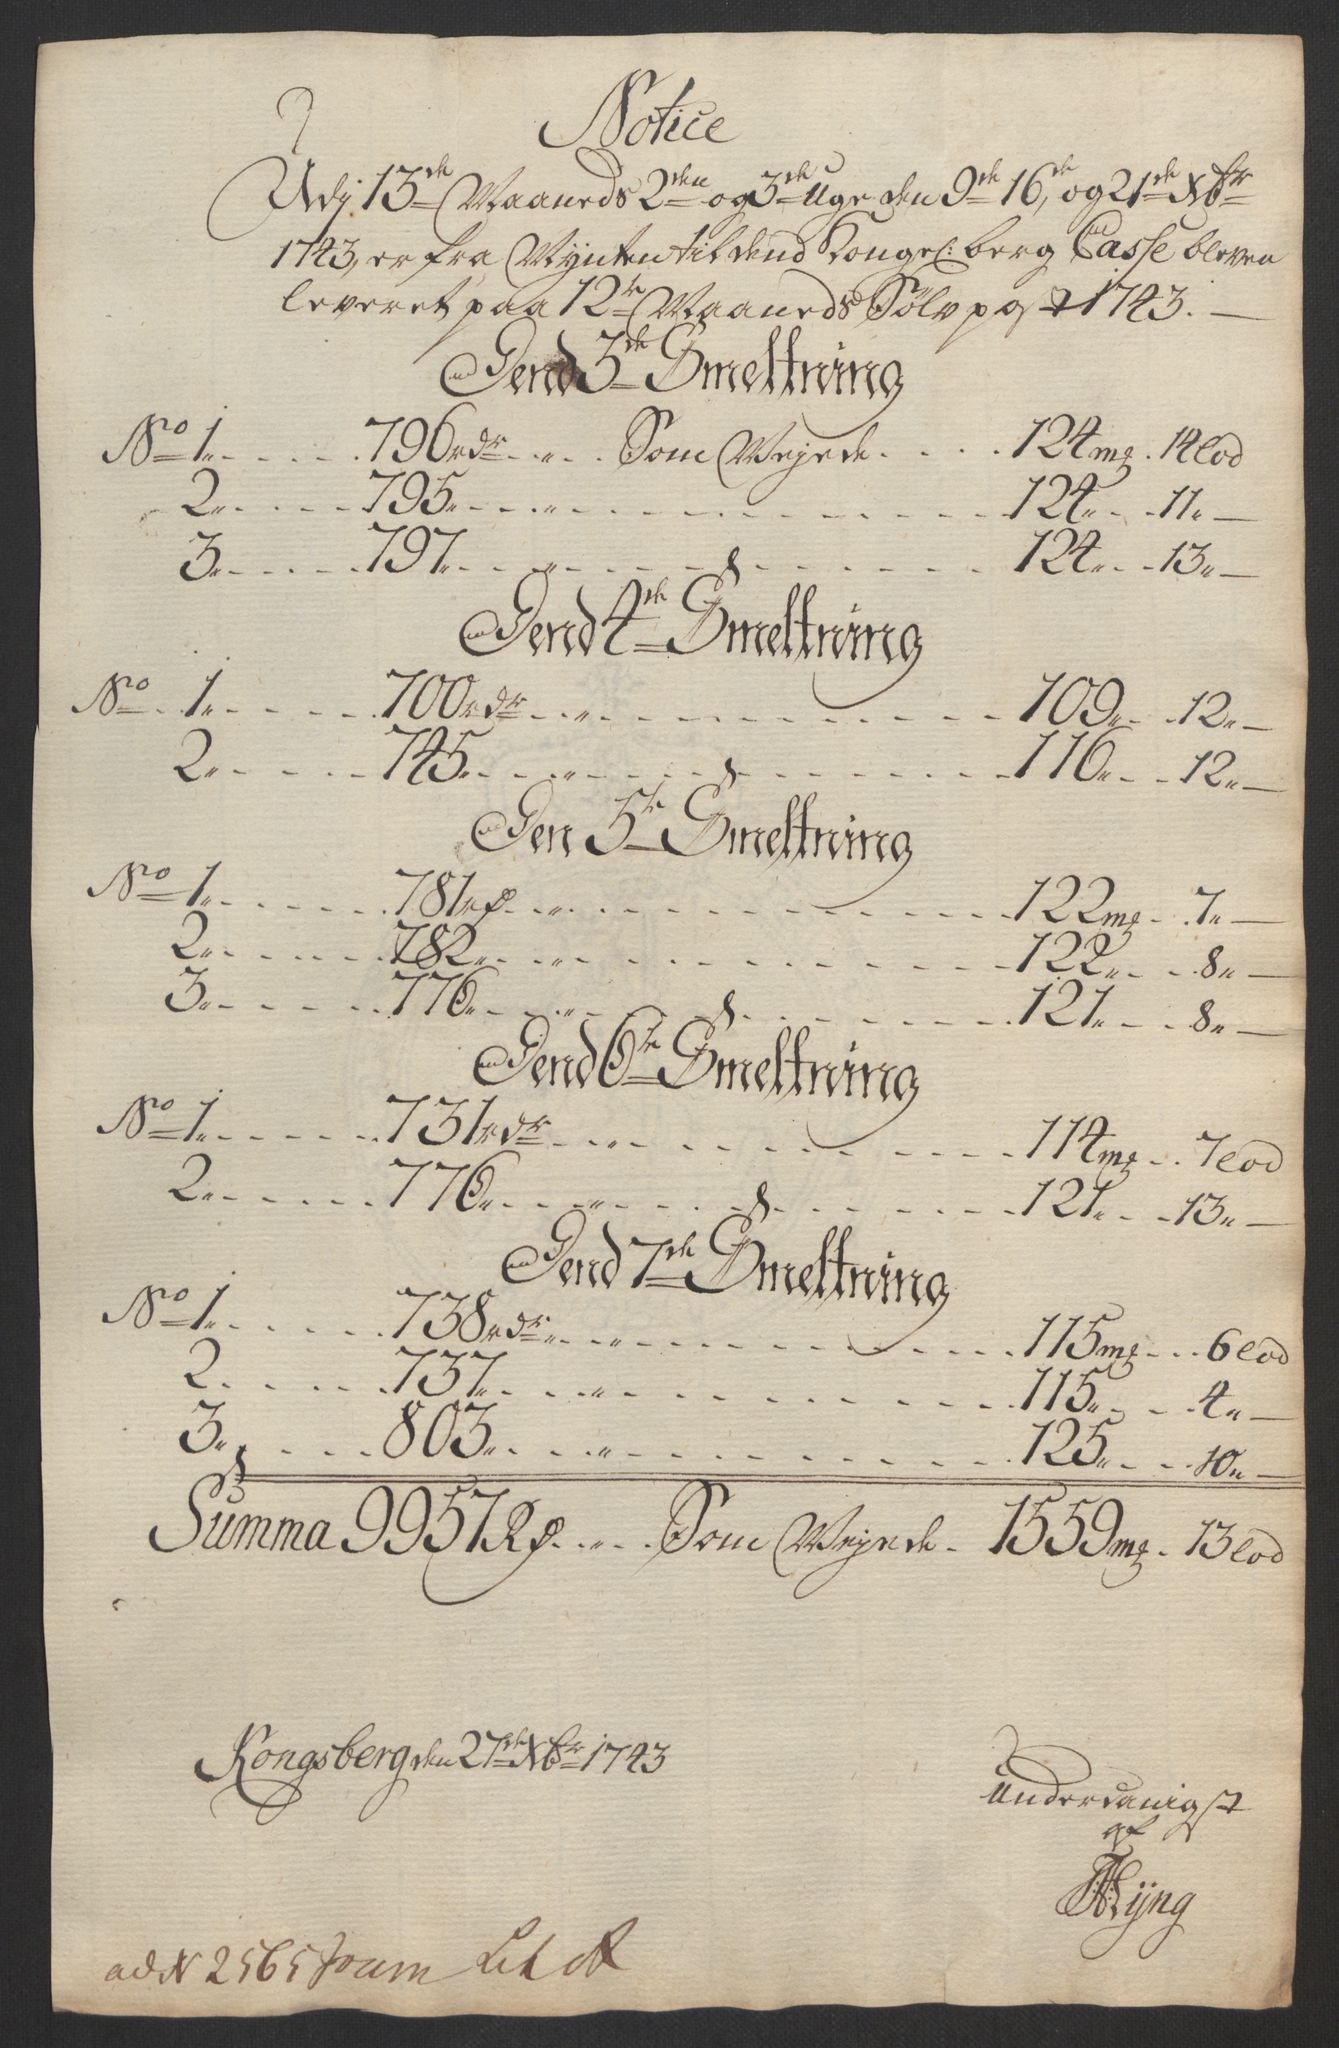 Notice
Udj 13de Maaneds 2den og 3de Uge den 9de 16de, og 21de Xbr
1743, er fra Mynten til dend Kongel: berg Casse bleven
leveret paa 12te Maaneds Sølvpost 1743.
Dend 3de Smeltning
No 1. 796 rdr Som Vejede 124 mg. 14 lod
2. 795 124. 11.
3. 797. 124. 13.
Dend 4de Smeltning
No 1. 700 rdr 109. 12.
2. 745. 116. 12.
Den 5te Smeltning
No 1. 781 rd 122 mg. 7.
2. 782. 122. 8.
3. 776. 121. 8.
Dend 6te Smeltning
No 1. 731 rdr 114 mg. 7 lod
2. 776. 121. 13.
Dend 7de Smeltning
No 1. 738 rdr 115 mg. 6 lod
2. 737. 115. 4.
3. 803. 125. 10.
Summa 9957 Rd. Som Vejede 1559 mg. 13 lod
Kongsberg den 27de Xbr 1743
Underdanigst
af
Ryng
ad N 2565 Journ Lit A